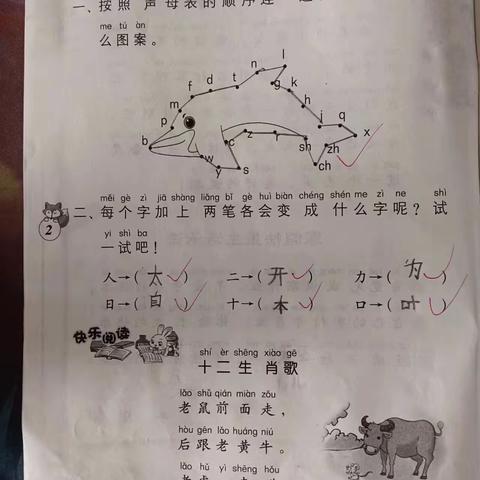 一、按照 声母表的顺序连
me tú àn
么图案。
l
n
d t g k
f h
m j q
p x
b c z r sh zh
w ch
y s
měi gè zì jiā shàng liǎng bǐ gè huì biàn chéng shén me zì ne shì
2 二、每个字加上 两笔各会变 成 什么字呢？试
yi shì ba
一试吧！
人→(太) 二→(开) 力→(为)
日→(自) 十→(本) 口→(中)
快乐阅读
shí èr shēng xiào gē
十二生 肖歌
lǎo shǔ qián miàn zǒu
老鼠前 面走，
hòu gēn lǎo huáng niú
后跟老黄牛。
lǎo hǔ yì shēng hǒu